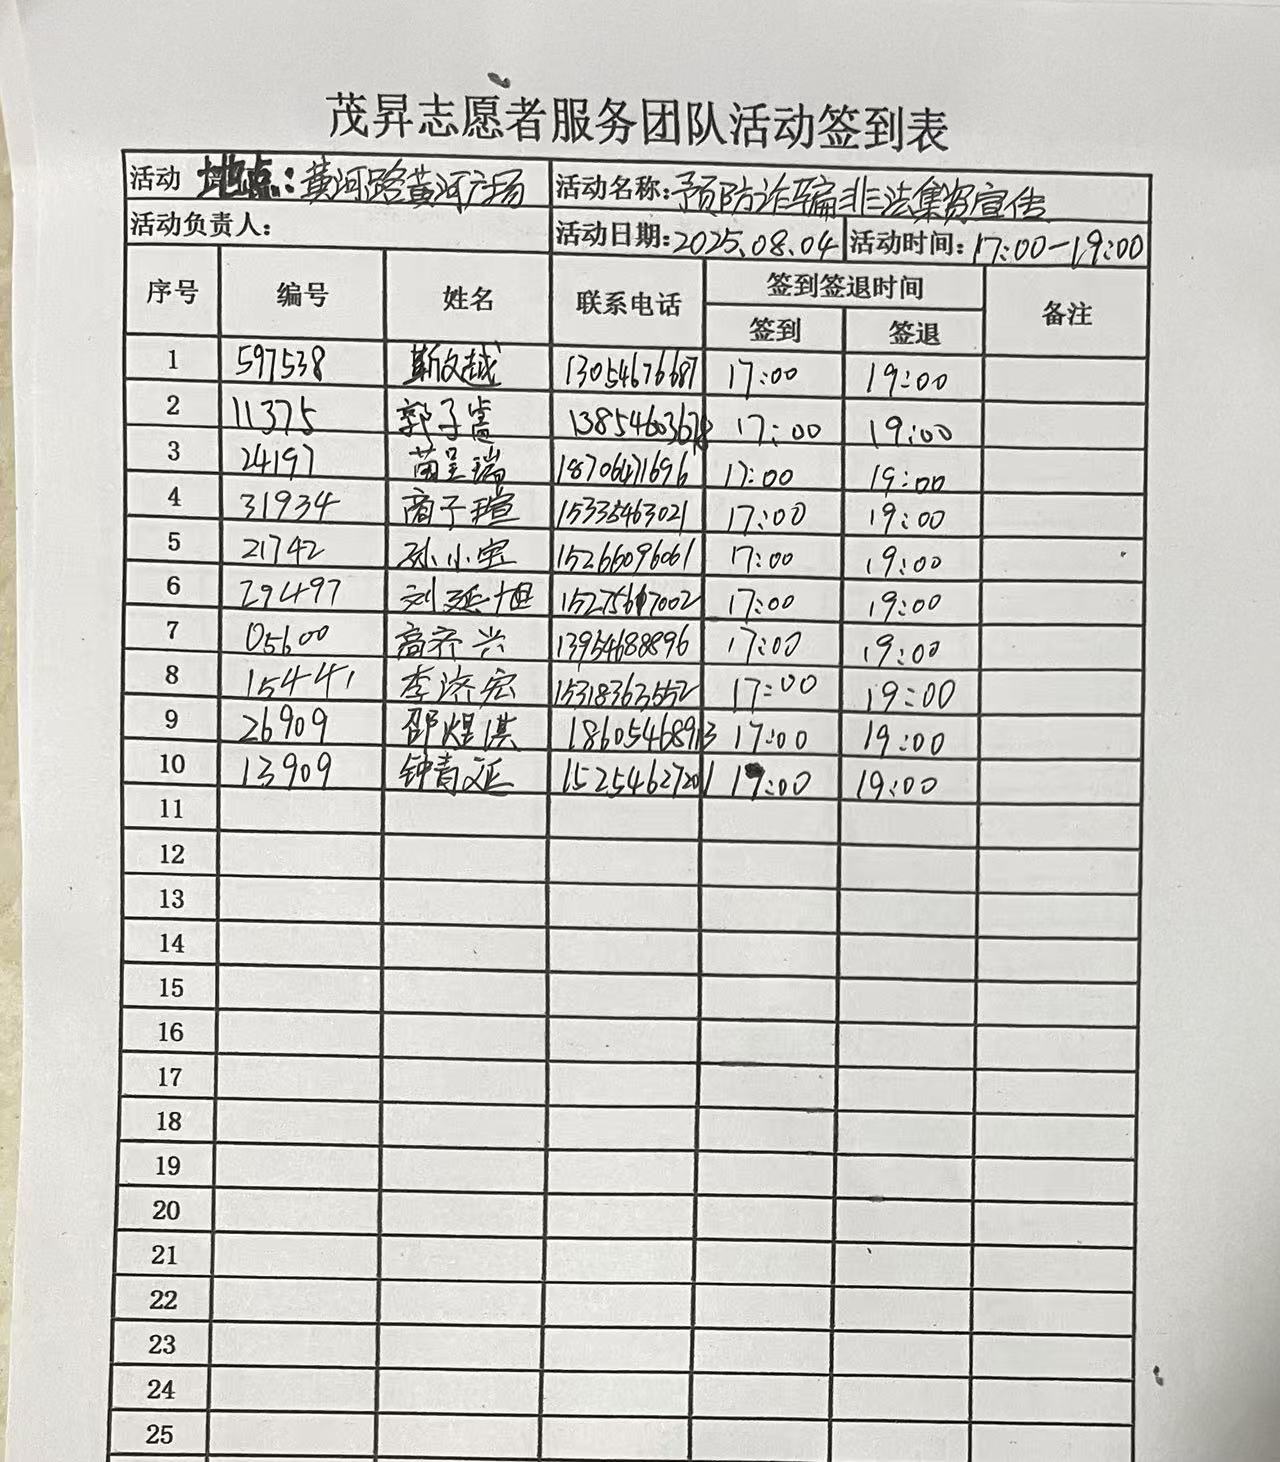 茂昇志愿者服务团队活动签到表
活动地点:黄河路黄河广场 活动名称:预防诈骗非法集资宣传
活动负责人: 活动日期:2025.08.04 活动时间:17:00-19:00
序号 编号 姓名 联系电话 签到签退时间 备注
签到 签退
1 597538 靳文越 13054676687 17:00 19:00
2 11375 郭子嵩 13854603678 17:00 19:00
3 24197 苗呈瑞 18706471696 17:00 19:00
4 31934 商子瑄 15335463021 17:00 19:00
5 21742 孙小宝 15266096061 17:00 19:00
6 29497 刘延旭 17:00 19:00
7 05600 高齐兴 13954688896 17:00 19:00
8 15441 李济宏 15318363552 17:00 19:00
9 26909 邵煜淇 18605468913 17:00 19:00
10 13909 钟青延 15254627201 19:00
11
12
13
14
15
16
17
18
19
20
21
22
23
24
25